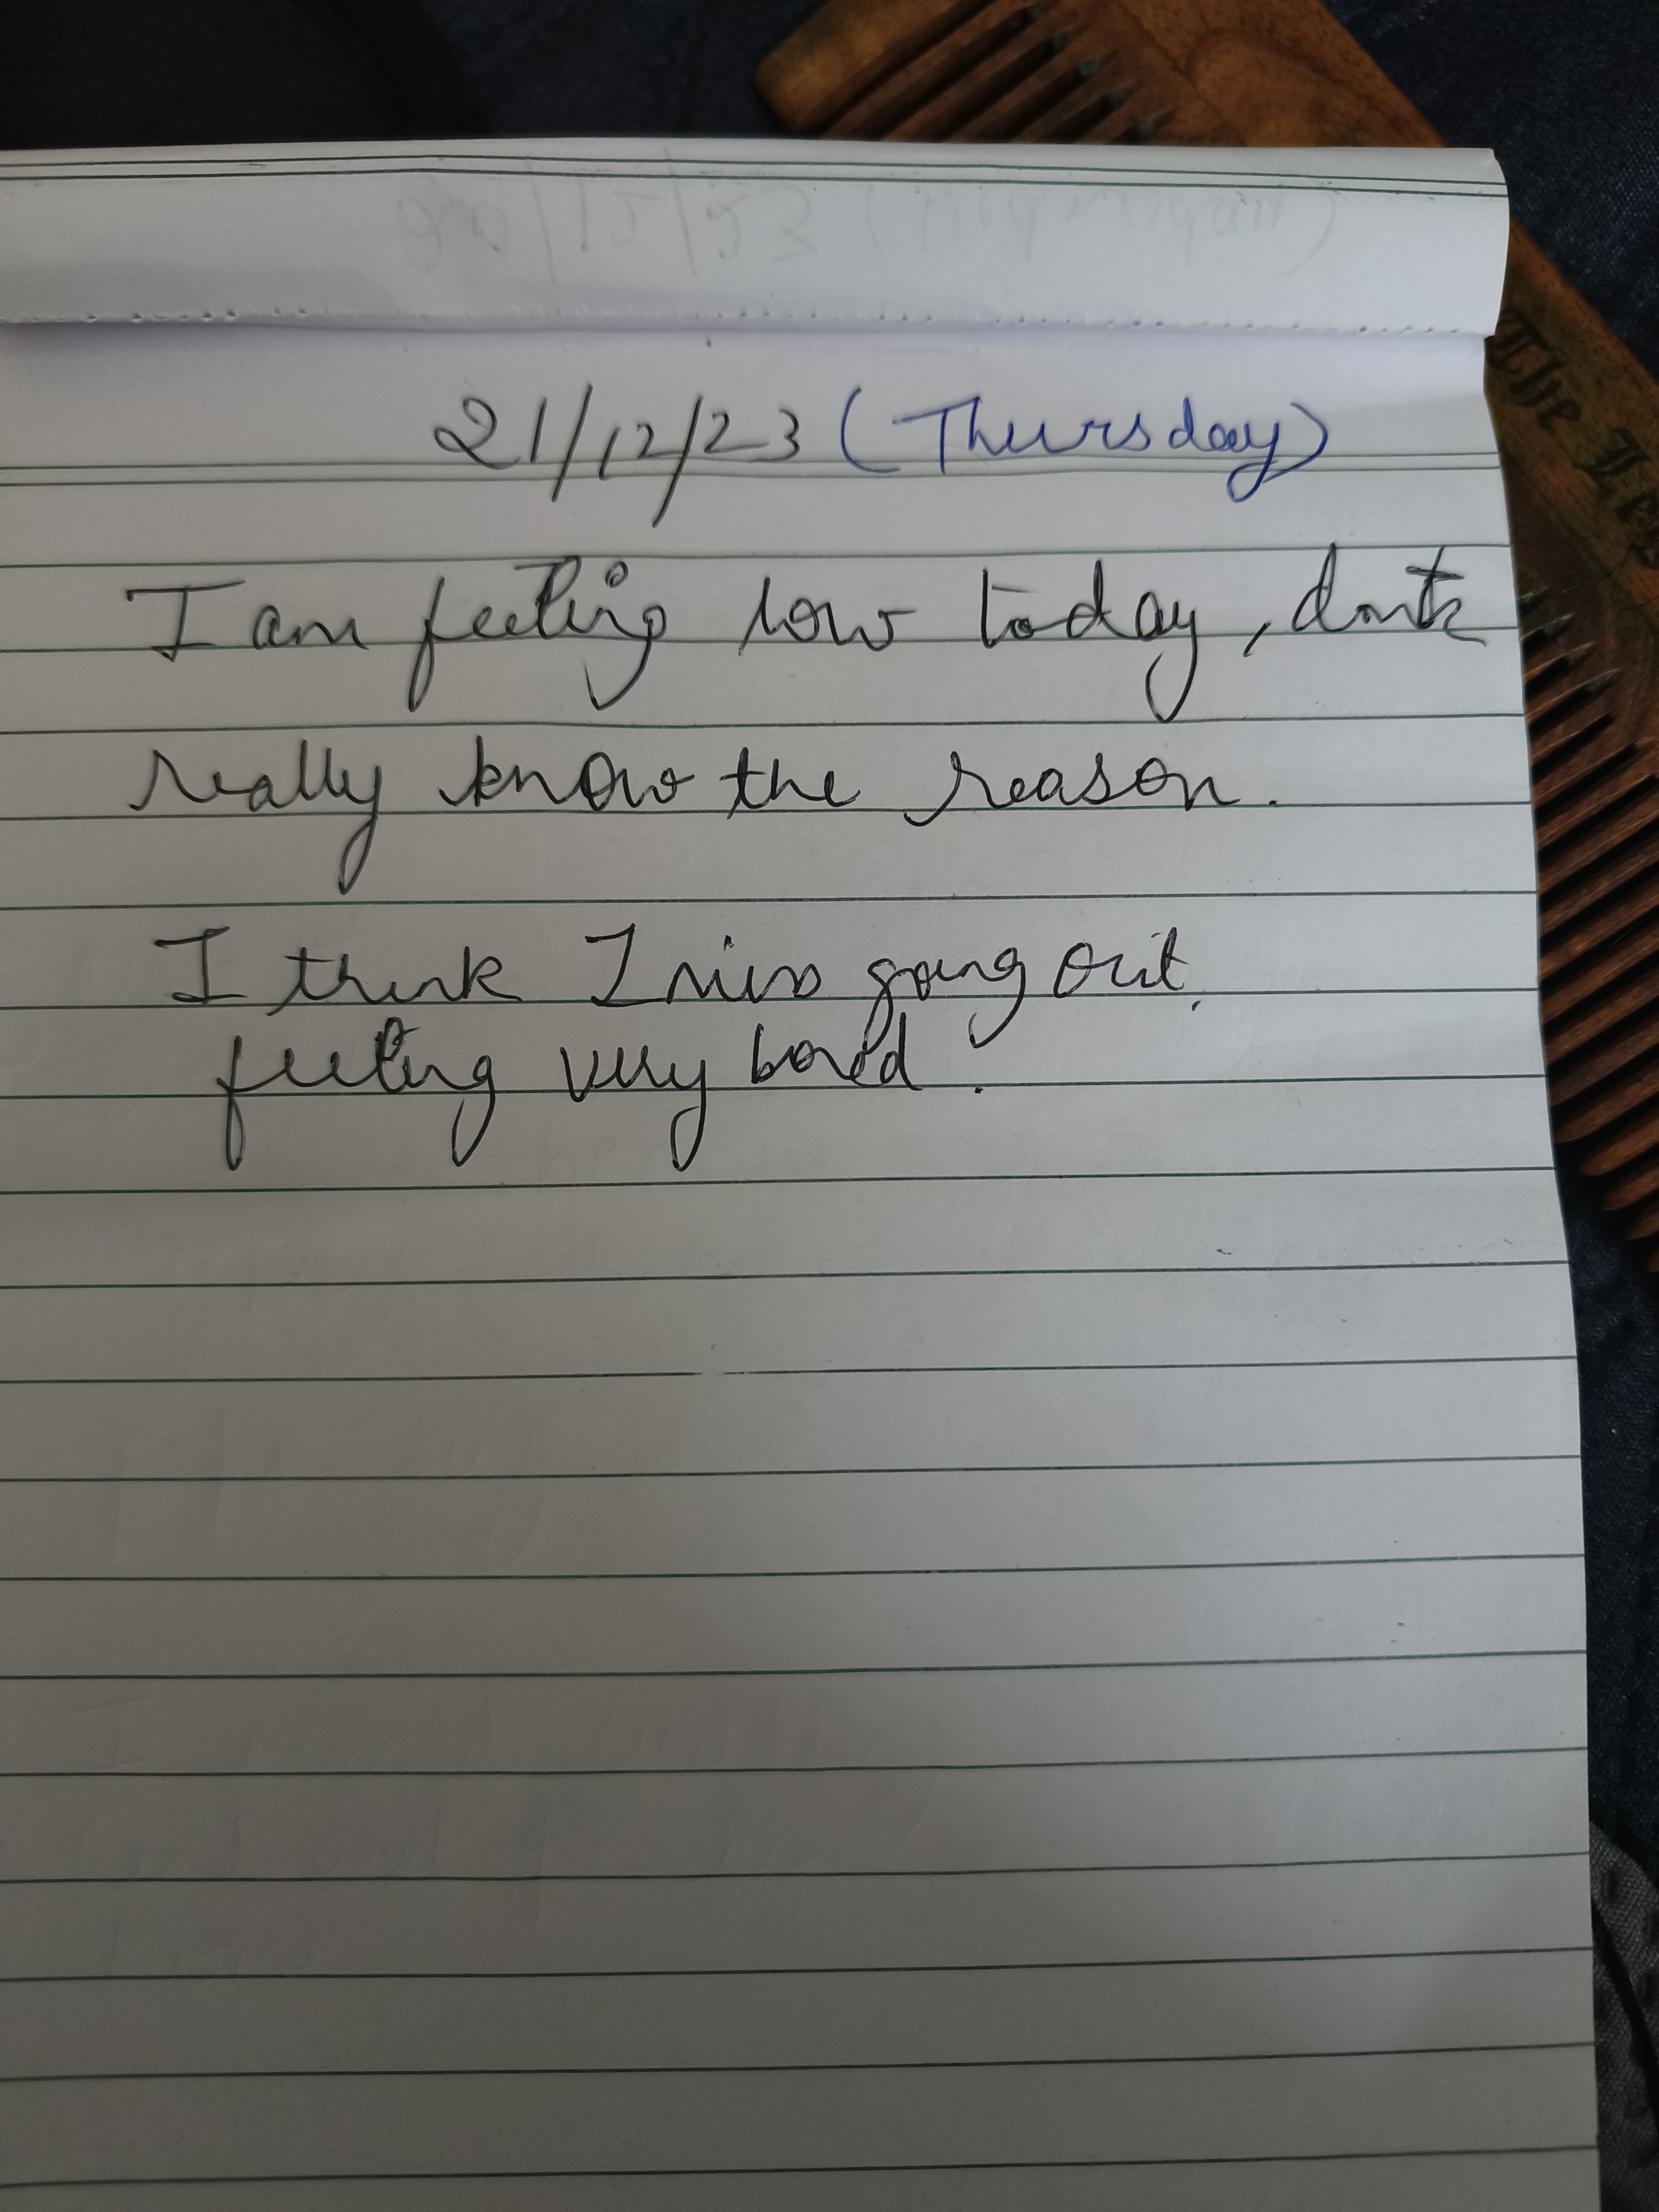 20/12/23 (Wednesday)
21/12/23 (Thursday)
I am feeling low today, dont
really know the reason.
I think I miss going out,
feeling very bored.
The Leg